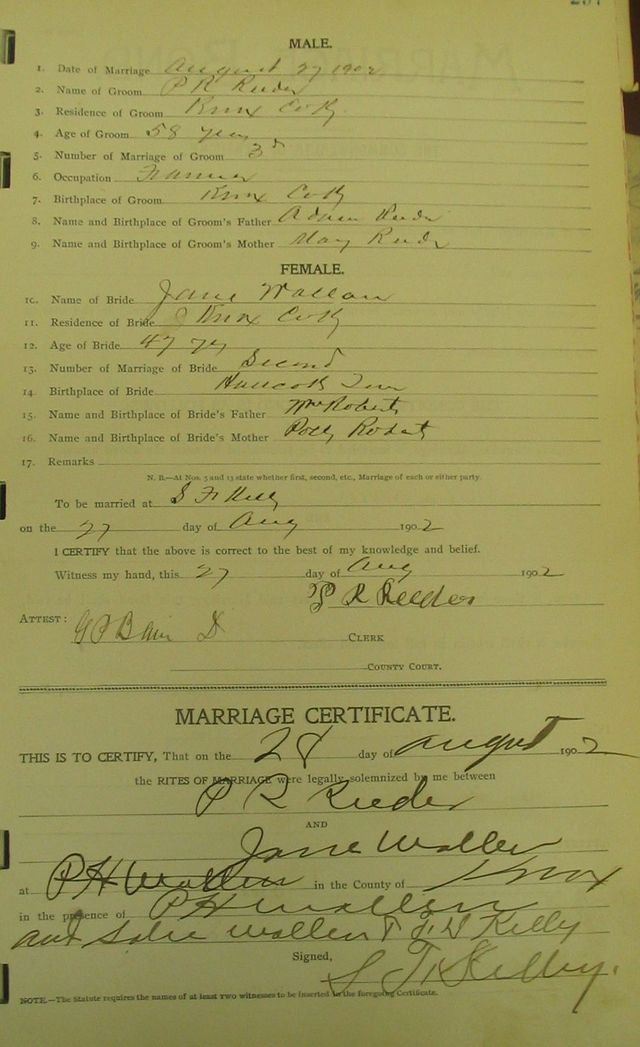 MALE.
1. Date of Marriage August 27 1902
2. Name of Groom P R Reeder
3. Residence of Groom Knox Co Ky.
4. Age of Groom 58 years
5. Number of Marriage of Groom 3rd
6. Occupation Farmer
7. Birthplace of Groom Knox Co Ky
8. Name and Birthplace of Groom's Father Adam Reeder
9. Name and Birthplace of Groom's Mother Mary Reeder
FEMALE.
10. Name of Bride Jane Wallen
11. Residence of Bride Knox Co Ky
12. Age of Bride 47 yr
13. Number of Marriage of Bride Second
14. Birthplace of Bride Hancock Tenn
15. Name and Birthplace of Bride's Father Wm Roberts
16. Name and Birthplace of Bride's Mother Polly Roberts
17. Remarks
N. B.—At Nos. 5 and 13 state whether first, second, etc., Marriage of each or either party.
To be married at S F Kelly
on the 27 day of Aug 1902
I CERTIFY that the above is correct to the best of my knowledge and belief.
Witness my hand, this 27 day of Aug 1902
P R Reeder
ATTEST: CLERK
COUNTY COURT.
MARRIAGE CERTIFICATE.
THIS IS TO CERTIFY, That on the 28 day of August 1902
the RITES OF MARRIAGE were legally solemnized by me between
P R Reeder
AND
Jane Wallen
at P H Wallen in the County of Knox
in the presence of P H Wallen
and Wallen Kelly
Signed, S F Kelly.
NOTE.—The Statute requires the names of at least two witnesses to be inserted in the foregoing Certificate.